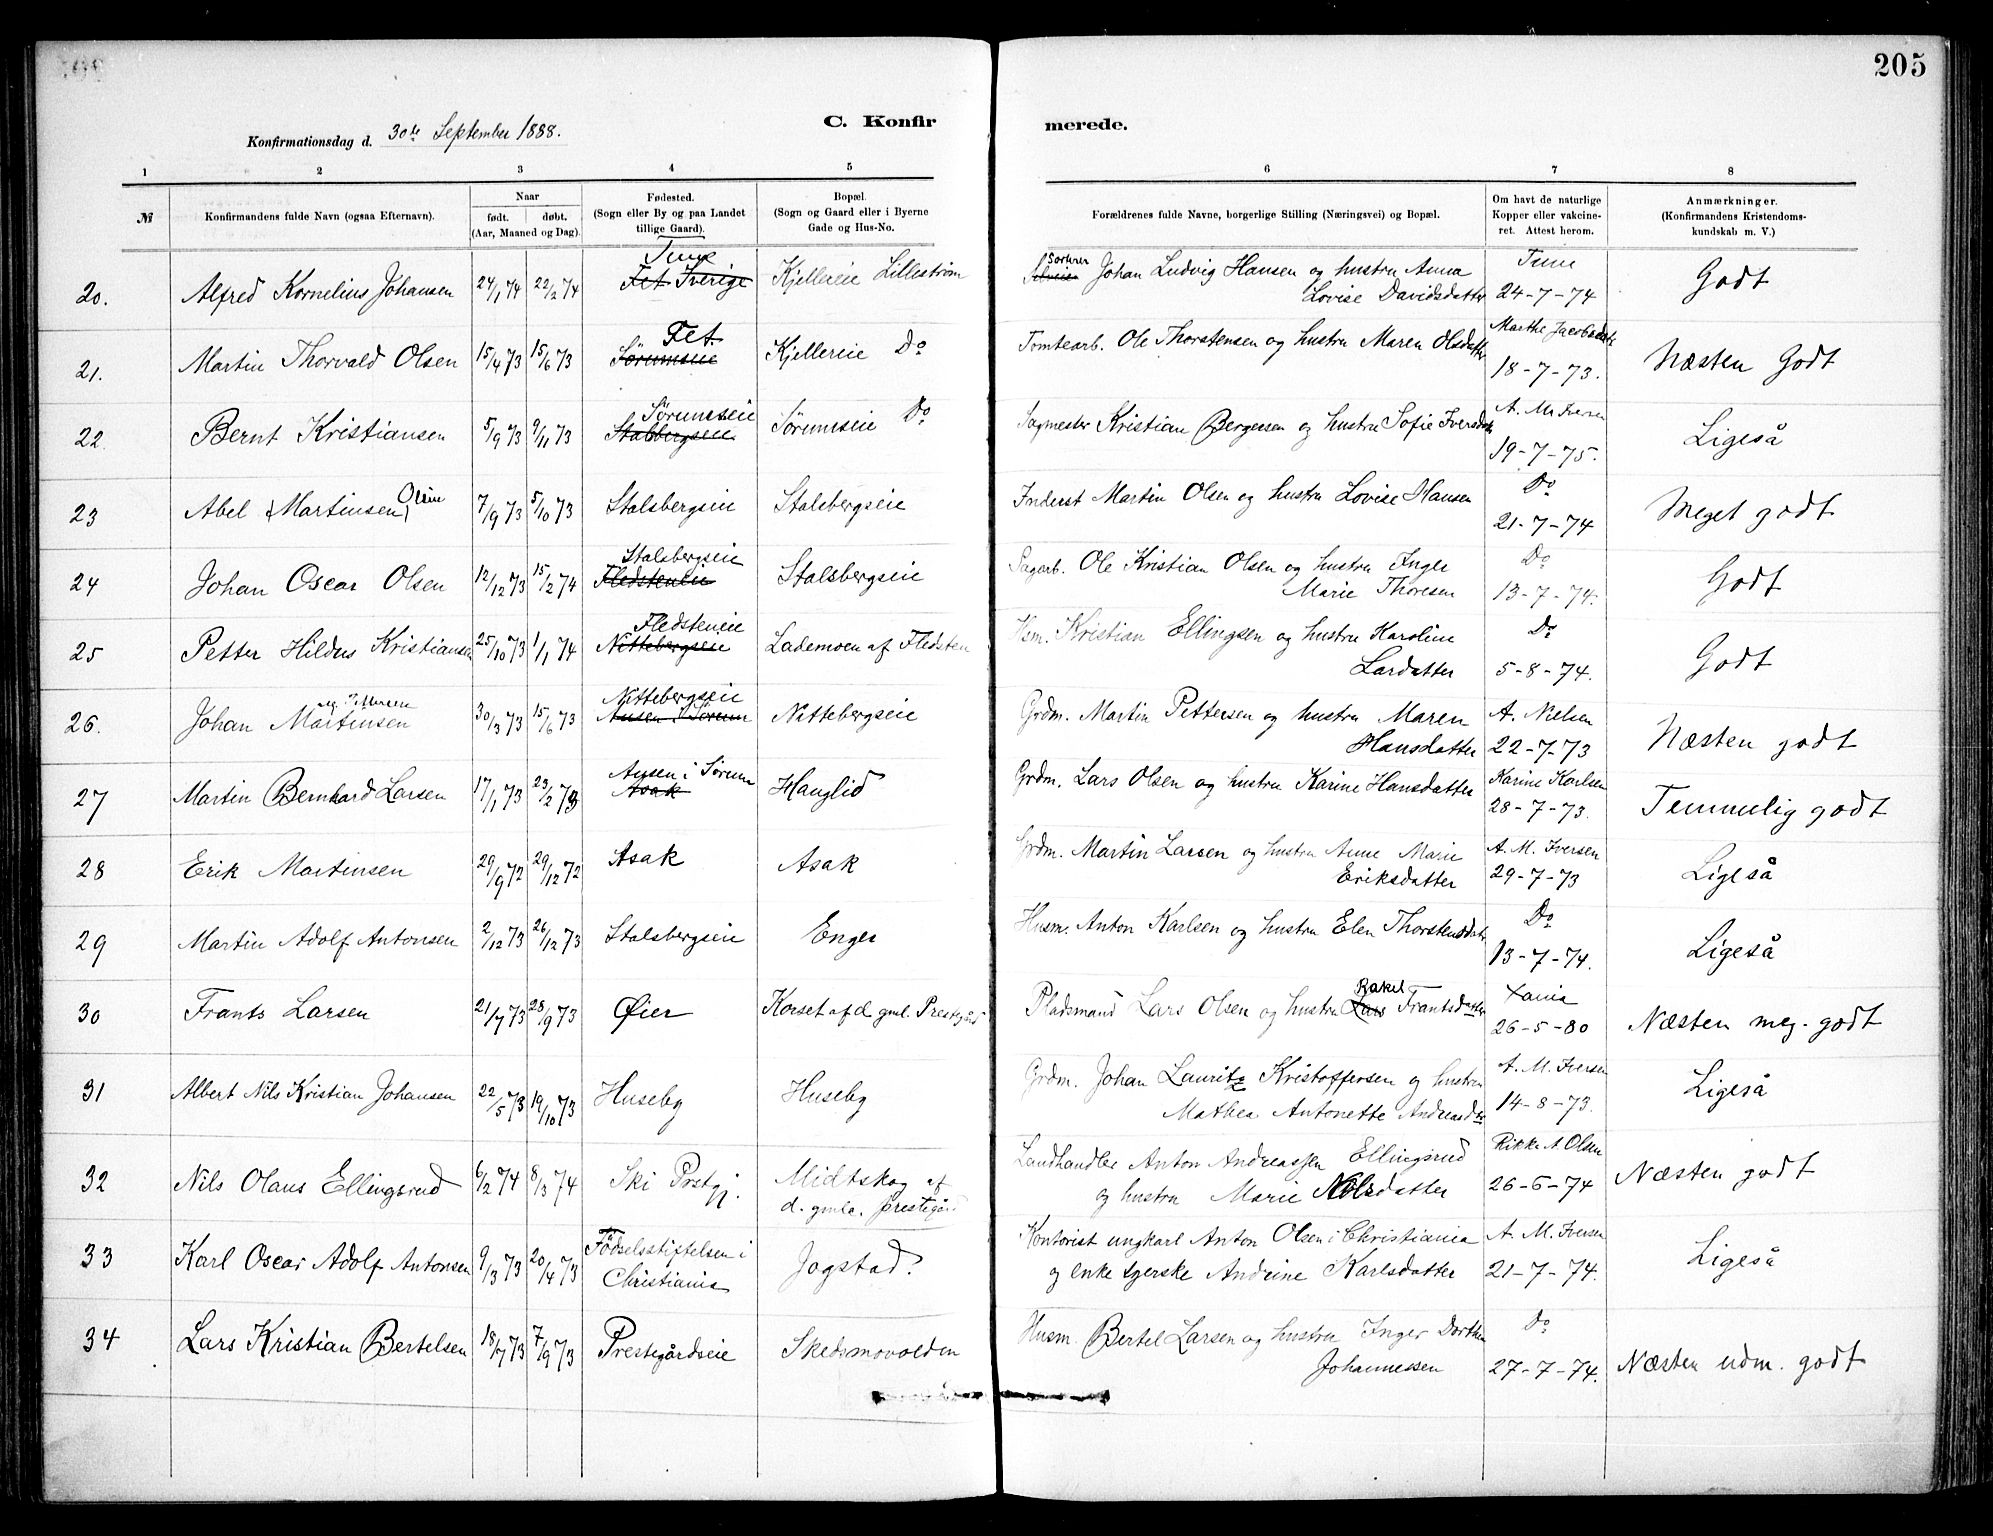 205
Konfirmationsdag d. 30te September 1888.
C. Konfirmerede.
1 2 3 4 5 6 7 8
№ Konfirmandens fulde Navn (ogsaa Efternavn). Naar født. døbt. (Aar, Maaned og Dag). Fødested. (Sogn eller By og paa Landet tillige Gaard). Bopæl. (Sogn og Gaard eller i Byerne Gade og Hus-No. Forældrenes fulde Navne, borgerlige Stilling (Næringsvei) og Bopæl. Om havt de naturlige Kopper eller vakcineret. Attest herom. Anmærkninger. (Konfirmandens Kristendomskundskab m. V.)
20. Alfred Kornelius Johansen 24/1 74 22/2 74 Tune Fet Sverige Kjellereie Lillestrøm Johan Ludvig Hansen og hustru Anna Lovise Davidsdatter Tune 24-7-74 Godt
21. Martin Thorvald Olsen 15/4 73 15/6 73 Fet Sørumseie Kjellereie Do Tomtearb. Ole Thorstensen og hustru Maren Olsdatter Marthe Jacobsdatt 18-7-73. Næsten Godt
22. Bernt Kristiansen 5/9 73 9/11 73 Sørumseie Stalsbergseie Sørumseie Do Sagmester Kristian Bergersen og hustru Sofie Iversdatt A. M. Iversen 19-7-75. Ligeså
23 Abel Martinsen Oline 7/9 73 5/10 73 Stalsbergseie Stalsbergseie Inderst Martin Olsen og hustru Lovise Hansen Do 21-7-74 Meget godt
24 Johan Oscar Olsen 12/12 73 15/2 74 Stalsbergseie Fledsteneie Stalsbergseie Sagarb. Ole Kristian Olsen og hustru Inger Marie Thoresen Do 13-7-74. Godt
25 Petter Hildus Kristiansen 25/10 73 1/1 74 Fledsteneie Nittebergseie Lademoen af Fledsten Hsm. Kristian Ellingsen og hustru Karoline Lardatter Do 5-8-74. Godt
26. Johan Martinsen 30/3 73 15/6 73 Nittebergseie Ausen i Sørum Nittebergseie Grdm. Martin Pettersen og hustru Maren Hansdatter A. Nielsen 22-7-73 Næsten godt
27 Martin Bernhard Larsen 17/1 73 23/2 73 Ausen i Sørum Asak Hauglid Grdm. Lars Olsen og hustru Karine Hansdatter Karine Karlsen 28-7-73. Temmelig godt
28 Erik Martinsen 29/9 72 29/12 72 Asak Asak Grdm. Martin Larsen og hustru Anne Marie Eriksdatter A. M. Iversen 29-7-73 Ligeså
29 Martin Adolf Antonsen 2/12 73 26/12 73 Stalsbergseie Enger Husm. Anton Karlsen og hustru Elen Thorstensdatt Do 13-7-74. Ligeså
30 Frants Larsen 21/7 73 28/9 73 Øier Korset af d. gml. Prestgård Pladsmand Lars Olsen og hustru Lars Rakel Frantsdatter 26-5-80 Næsten meg. godt
31 Albert Nils Kristian Johansen 22/5 73 19/10 73 Huseby Huseby Grdm. Johan Lauritz Kristoffersen og hustru Mathea Antonette Andreasdtr A. M. Iversen 14-8-73. Ligeså
32 Nils Olaus Ellingsrud 6/2 74 8/3 74 Ski Prstgj. Midtskog af d. gmle. prestegård Landhandler Anton Andreassen Ellingsrud og hustru Marie Nilsdatter Rikke A Olsen 26-6-74 Næsten godt
33 Karl Oscar Adolf Antonsen 9/3 73 20/4 73 Fødselsstiftelsen i Christiania Jogstad? Kontorist ungkarl Anton Olsen i Christiania og enke Andrine Karlsdatter A. M. Iversen 21-7-74. Ligeså
34 Lars Kristian Bertelsen 18/7 73 7/9 73 Prestegårdseie Skedsmovolden Husm. Bertel Larsen og hustru Inger Dorthea Johannessen Do 27-7-74. Næsten udm. godt